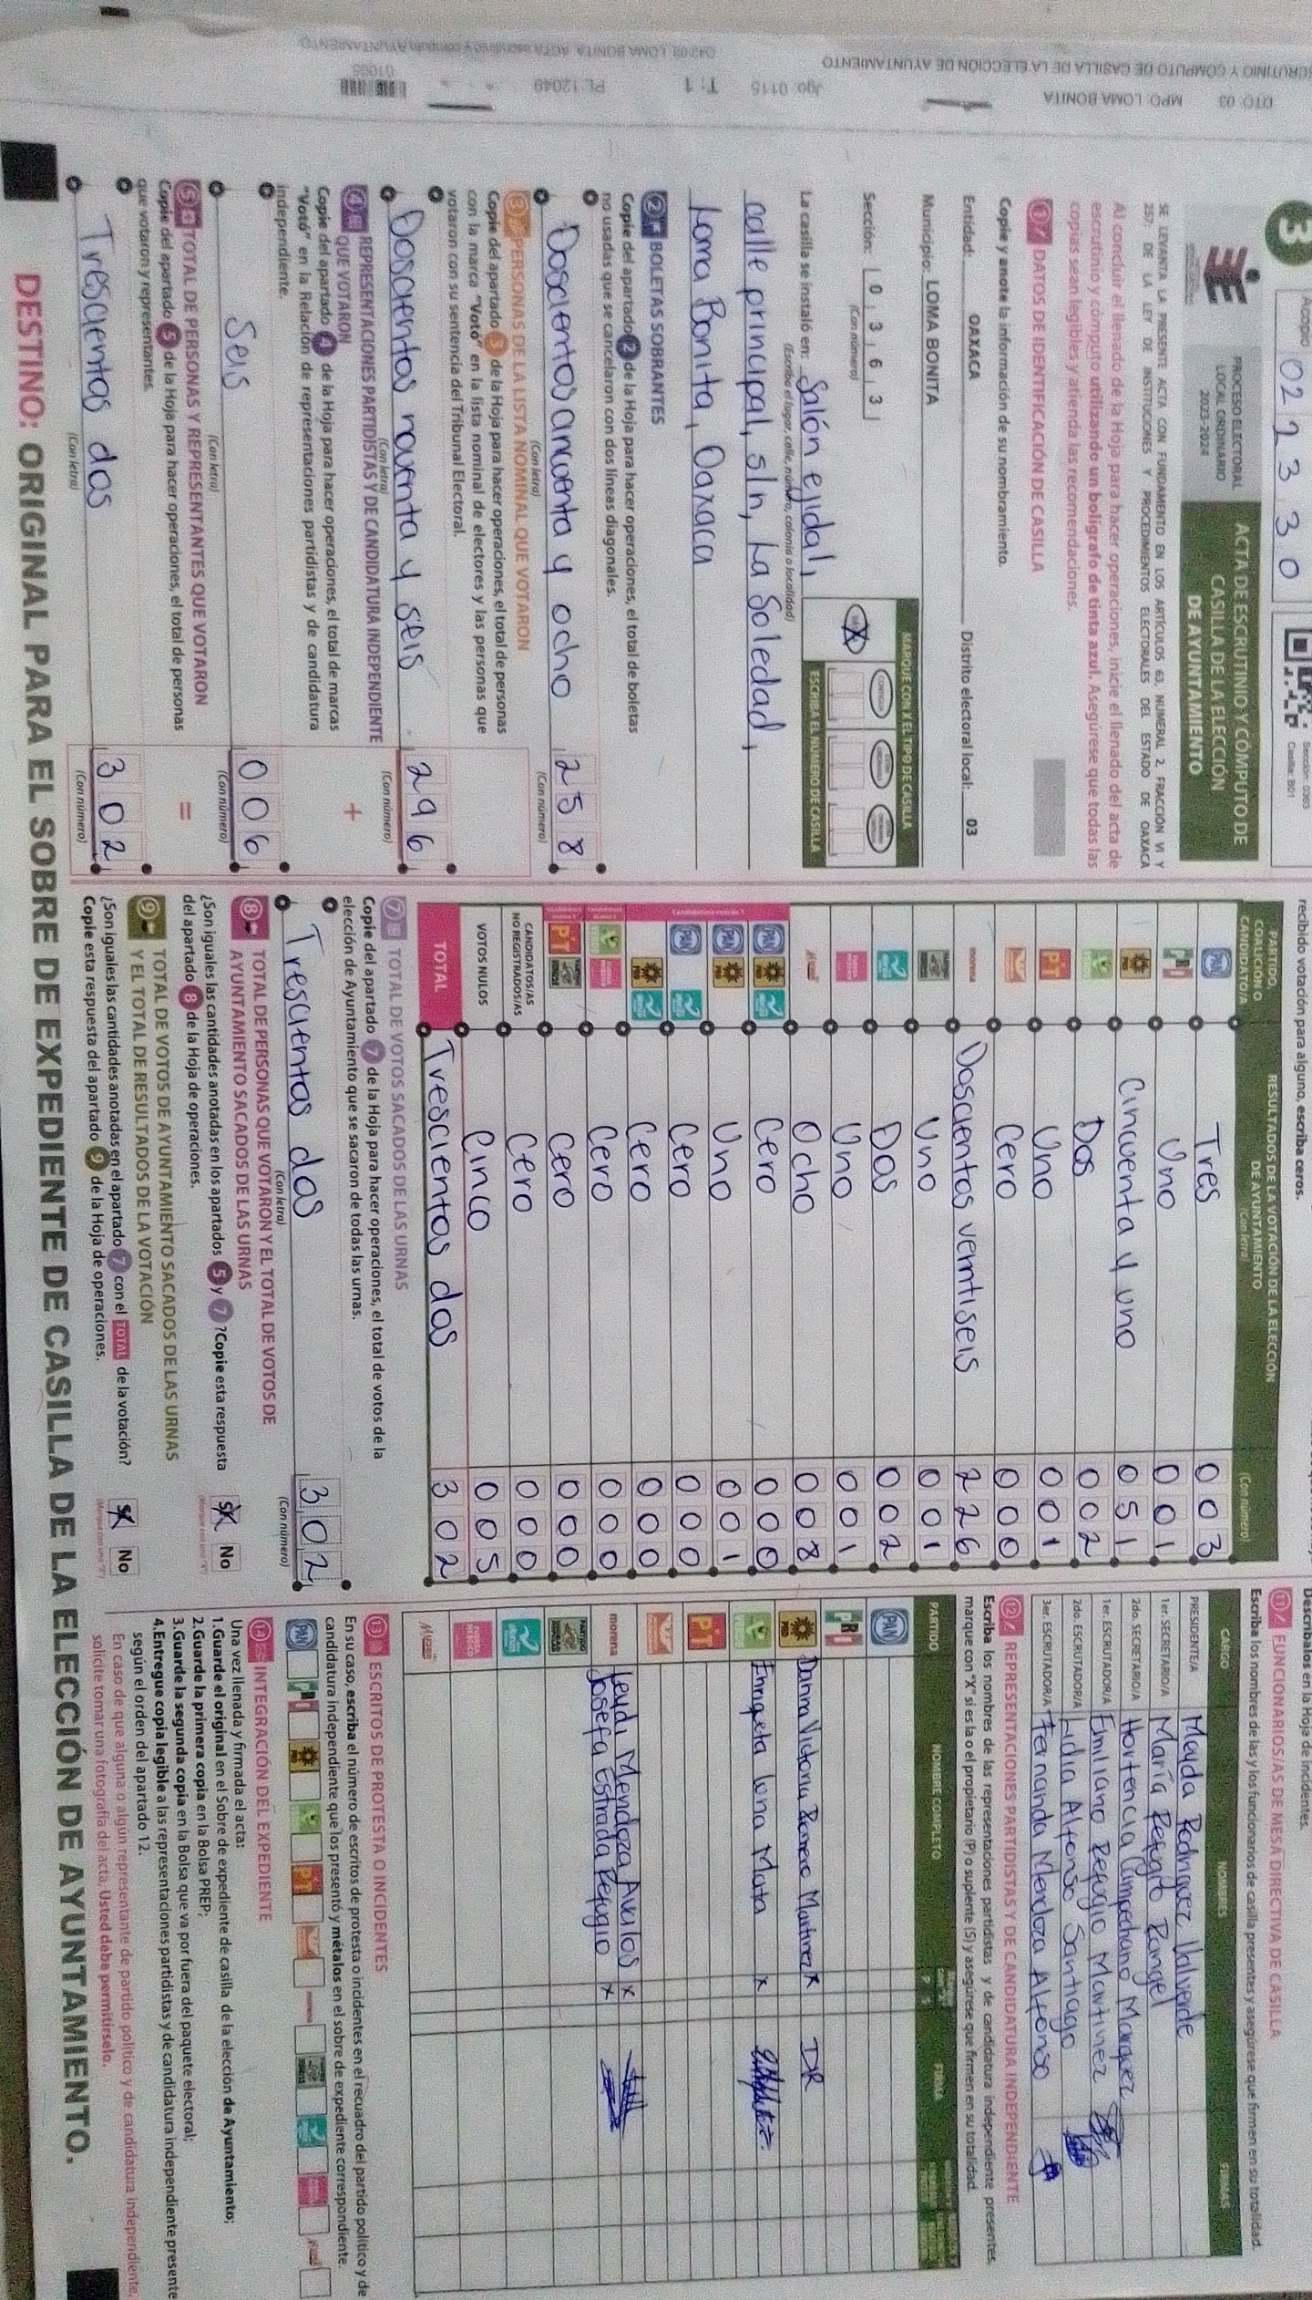 3
FOLIO
022330
Sección: 0363
Casilla: B01
PROCESO ELECTORAL
LOCAL ORDINARIO
2023-2024
ACTA DE ESCRUTINIO Y CÓMPUTO DE
CASILLA DE LA ELECCIÓN
DE AYUNTAMIENTO
SE LEVANTA LA PRESENTE ACTA CON FUNDAMENTO EN LOS ARTÍCULOS 63, NUMERAL 2, FRACCIÓN VI Y
257; DE LA LEY DE INSTITUCIONES Y PROCEDIMIENTOS ELECTORALES DEL ESTADO DE OAXACA
Al concluir el llenado de la Hoja para hacer operaciones, inicie el llenado del acta de
escrutinio y cómputo utilizando un bolígrafo de tinta azul. Asegúrese que todas las
copias sean legibles y atienda las recomendaciones.
1 DATOS DE IDENTIFICACIÓN DE CASILLA
Copie y anote la información de su nombramiento.
Entidad: OAXACA Distrito electoral local: 03
Municipio: LOMA BONITA
Sección: 0 3 6 3
(Con número)
MARQUE CON X EL TIPO DE CASILLA
X
ESCRIBA EL NÚMERO DE CASILLA
La casilla se instaló en: Salón ejidal,
(Escriba el lugar, calle, número, colonia o localidad)
calle principal, s/n, La Soledad,
Loma Bonita, Oaxaca
2 BOLETAS SOBRANTES
Copie del apartado 2 de la Hoja para hacer operaciones, el total de boletas
no usadas que se cancelaron con dos líneas diagonales.
Doscientos cincuenta y ocho 258
(Con letra) (Con número)
3 PERSONAS DE LA LISTA NOMINAL QUE VOTARON
Copie del apartado 3 de la Hoja para hacer operaciones, el total de personas
con la marca "Votó" en la lista nominal de electores y las personas que
votaron con su sentencia del Tribunal Electoral.
Doscientos noventa y seis 296
(Con letra) (Con número)
4 REPRESENTACIONES PARTIDISTAS Y DE CANDIDATURA INDEPENDIENTE
QUE VOTARON +
Copie del apartado 4 de la Hoja para hacer operaciones, el total de marcas
"Votó" en la Relación de representaciones partidistas y de candidatura
independiente.
Seis 006
(Con letra) (Con número)
5 TOTAL DE PERSONAS Y REPRESENTANTES QUE VOTARON =
Copie del apartado 5 de la Hoja para hacer operaciones, el total de personas
que votaron y representantes.
Trescientos dos 302
(Con letra) (Con número)
recibido votación para alguno, escriba ceros.
PARTIDO,
COALICIÓN O
CANDIDATO/A
RESULTADOS DE LA VOTACIÓN DE LA ELECCIÓN
DE AYUNTAMIENTO
(Con letra) (Con número)
PAN Tres 003
PRI Uno 001
PRD Cincuenta y uno 051
Dos 002
PT Uno 001
Cero 000
morena Doscientos veintiseis 226
Uno 001
Dos 002
Uno 001
Ocho 008
PAN PRD Cero 000
PAN PRD Uno 001
PAN Cero 000
PRD Cero 000
Cero 000
PT Cero 000
CANDIDATOS/AS
NO REGISTRADOS/AS Cero 000
VOTOS NULOS Cinco 005
TOTAL Trescientos dos 302
7 TOTAL DE VOTOS SACADOS DE LAS URNAS
Copie del apartado 7 de la Hoja para hacer operaciones, el total de votos de la
elección de Ayuntamiento que se sacaron de todas las urnas.
Trescientos dos 302
(Con letra) (Con número)
8 TOTAL DE PERSONAS QUE VOTARON Y EL TOTAL DE VOTOS DE
AYUNTAMIENTO SACADOS DE LAS URNAS
¿Son iguales las cantidades anotadas en los apartados 5 y 7 ?Copie esta respuesta
del apartado 8 de la Hoja de operaciones.
Sí X No
9 TOTAL DE VOTOS DE AYUNTAMIENTO SACADOS DE LAS URNAS
Y EL TOTAL DE RESULTADOS DE LA VOTACIÓN
¿Son iguales las cantidades anotadas en el apartado 7 con el TOTAL de la votación?
Copie esta respuesta del apartado 9 de la Hoja de operaciones.
Sí X No
Descríbalos en la Hoja de incidentes.
11 FUNCIONARIOS/AS DE MESA DIRECTIVA DE CASILLA
Escriba los nombres de las y los funcionarios de casilla presentes y asegúrese que firmen en su totalidad.
CARGO NOMBRES FIRMAS
PRESIDENTE/A Mayda Rodriguez Valverde
1er. SECRETARIO/A María Refugio Rangel
2do. SECRETARIO/A Hortencia Campechano Marquez
1er. ESCRUTADOR/A Emiliano Refugio Martinez
2do. ESCRUTADOR/A Lidia Alfonso Santiago
3er. ESCRUTADOR/A Fernanda Mendoza Alfonso
12 REPRESENTACIONES PARTIDISTAS Y DE CANDIDATURA INDEPENDIENTE
Escriba los nombres de las representaciones partidistas y de candidatura independiente presentes,
marque con "X" si es la o el propietario (P) o suplente (S) y asegúrese que firmen en su totalidad.
PARTIDO NOMBRE COMPLETO P S FIRMA
PAN
PRI
PRD Danna Victoria Romero Martinez x DR
Enriqueta Luna Mata x
PT
morena Leydi Mendoza Avalos x
Josefa Estrada Refugio x
13 ESCRITOS DE PROTESTA O INCIDENTES
En su caso, escriba el número de escritos de protesta o incidentes en el recuadro del partido político y de
candidatura independiente que los presentó y métalos en el sobre de expediente correspondiente.
PAN PRI PRD PT morena
14 INTEGRACIÓN DEL EXPEDIENTE
Una vez llenada y firmada el acta:
1.Guarde el original en el Sobre de expediente de casilla de la elección de Ayuntamiento;
2.Guarde la primera copia en la Bolsa PREP;
3.Guarde la segunda copia en la Bolsa que va por fuera del paquete electoral;
4.Entregue copia legible a las representaciones partidistas y de candidatura independiente presente
según el orden del apartado 12.
En caso de que alguna o algun representante de partido político y de candidatura independiente,
solicite tomar una fotografía del acta, Usted debe permitírselo.
DESTINO: ORIGINAL PARA EL SOBRE DE EXPEDIENTE DE CASILLA DE LA ELECCIÓN DE AYUNTAMIENTO.
DTO: 03 MPO: LOMA BONITA
ESCRUTINIO Y CÓMPUTO DE CASILLA DE LA ELECCIÓN DE AYUNTAMIENTO
Jgo: 0115 T: 1 PL: 12049